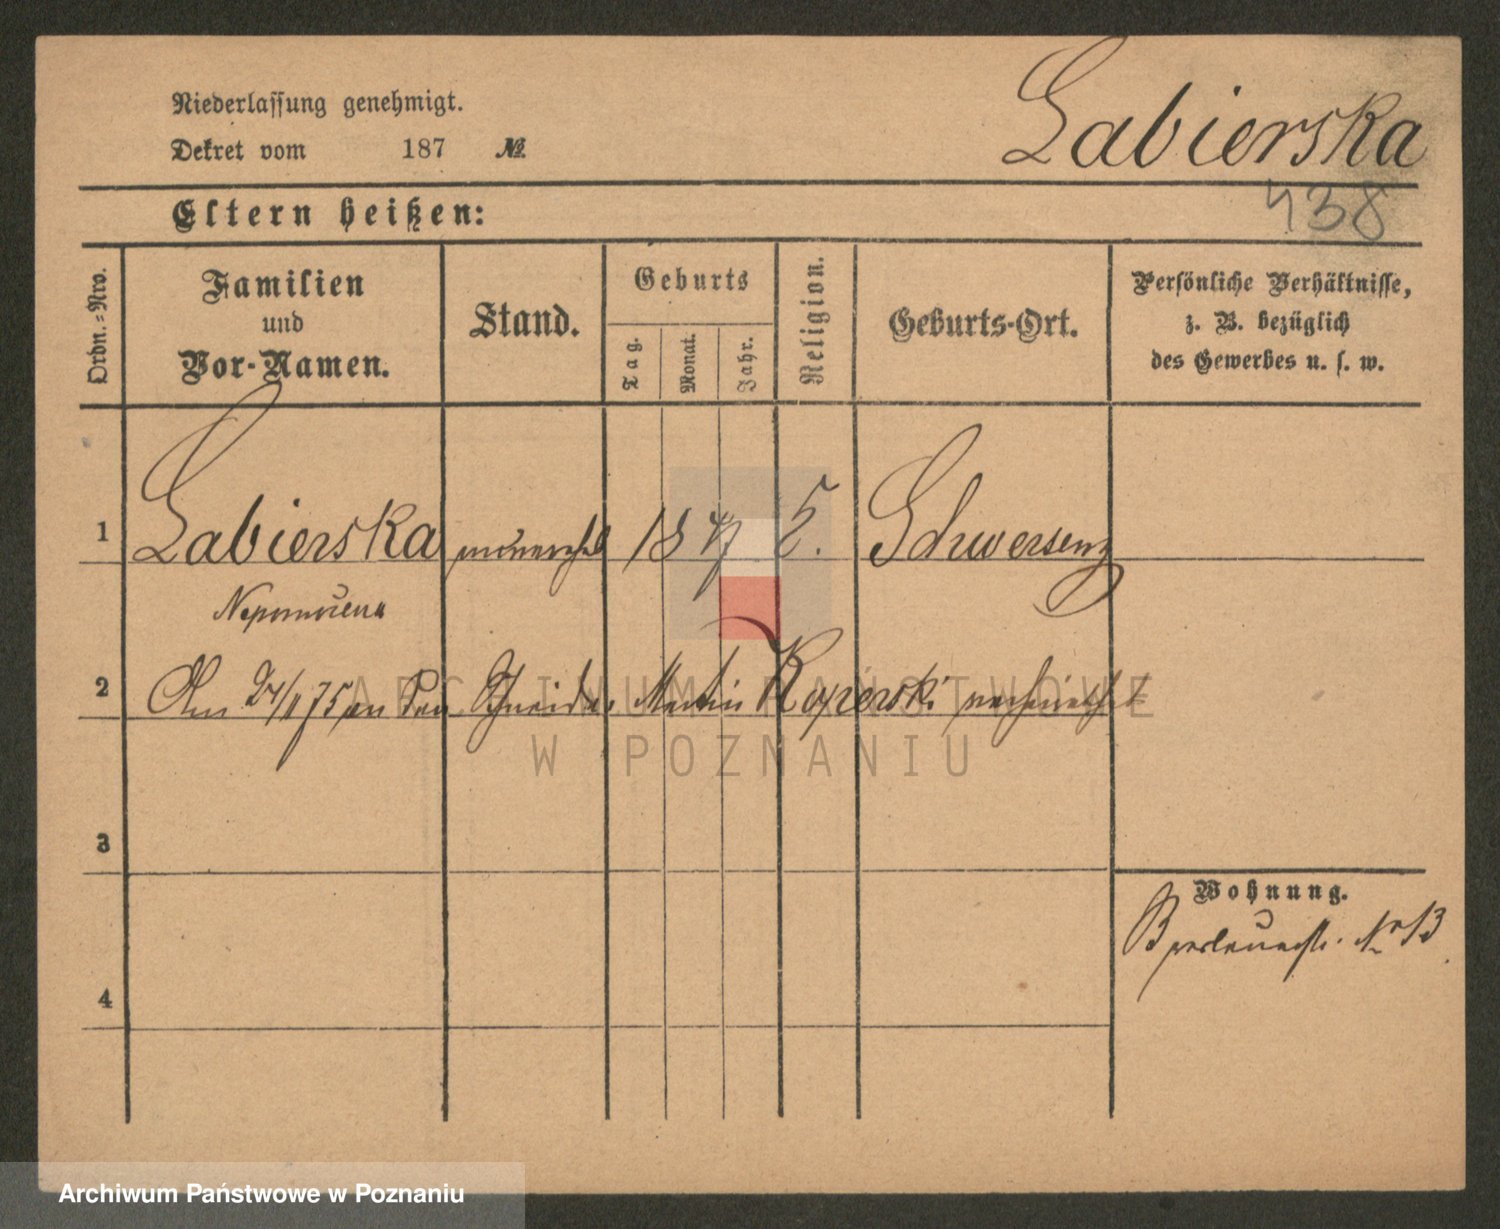 Niederlassung genehmigt.
Dekret vom 187 №
Labierska
438
Eltern heißen:
Ordn.-Nro.
Familien
und
Vor-Namen.
Stand.
Geburts
Tag.
Monat.
Jahr.
Religion.
Geburts-Ort.
Persönliche Verhältnisse,
z. B. bezüglich
des Gewerbes u. s. w.
1 Labierska unverehel 18 47 Schwersenz
Nepomucena
2 Am 24/ 75 an den Schneider Martin Koperski verheirathet
ARCHIWUM PAŃSTWOWE
W POZNANIU
3
Wohnung.
Breslauerstr. No 13
4
Archiwum Państwowe w Poznaniu